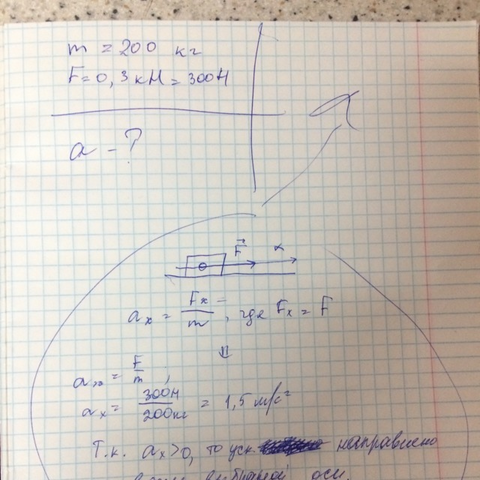 m = 200 кг
F = 0,3 кН = 300 Н
a - ?
F⃗ x
aₓ = Fₓ/m, где Fₓ = F
⇓
aₓ = F/m,
aₓ = 300Н/200кг = 1,5 м/с²
Т.к. aₓ>0, то уск. направлено
выбраной оси.